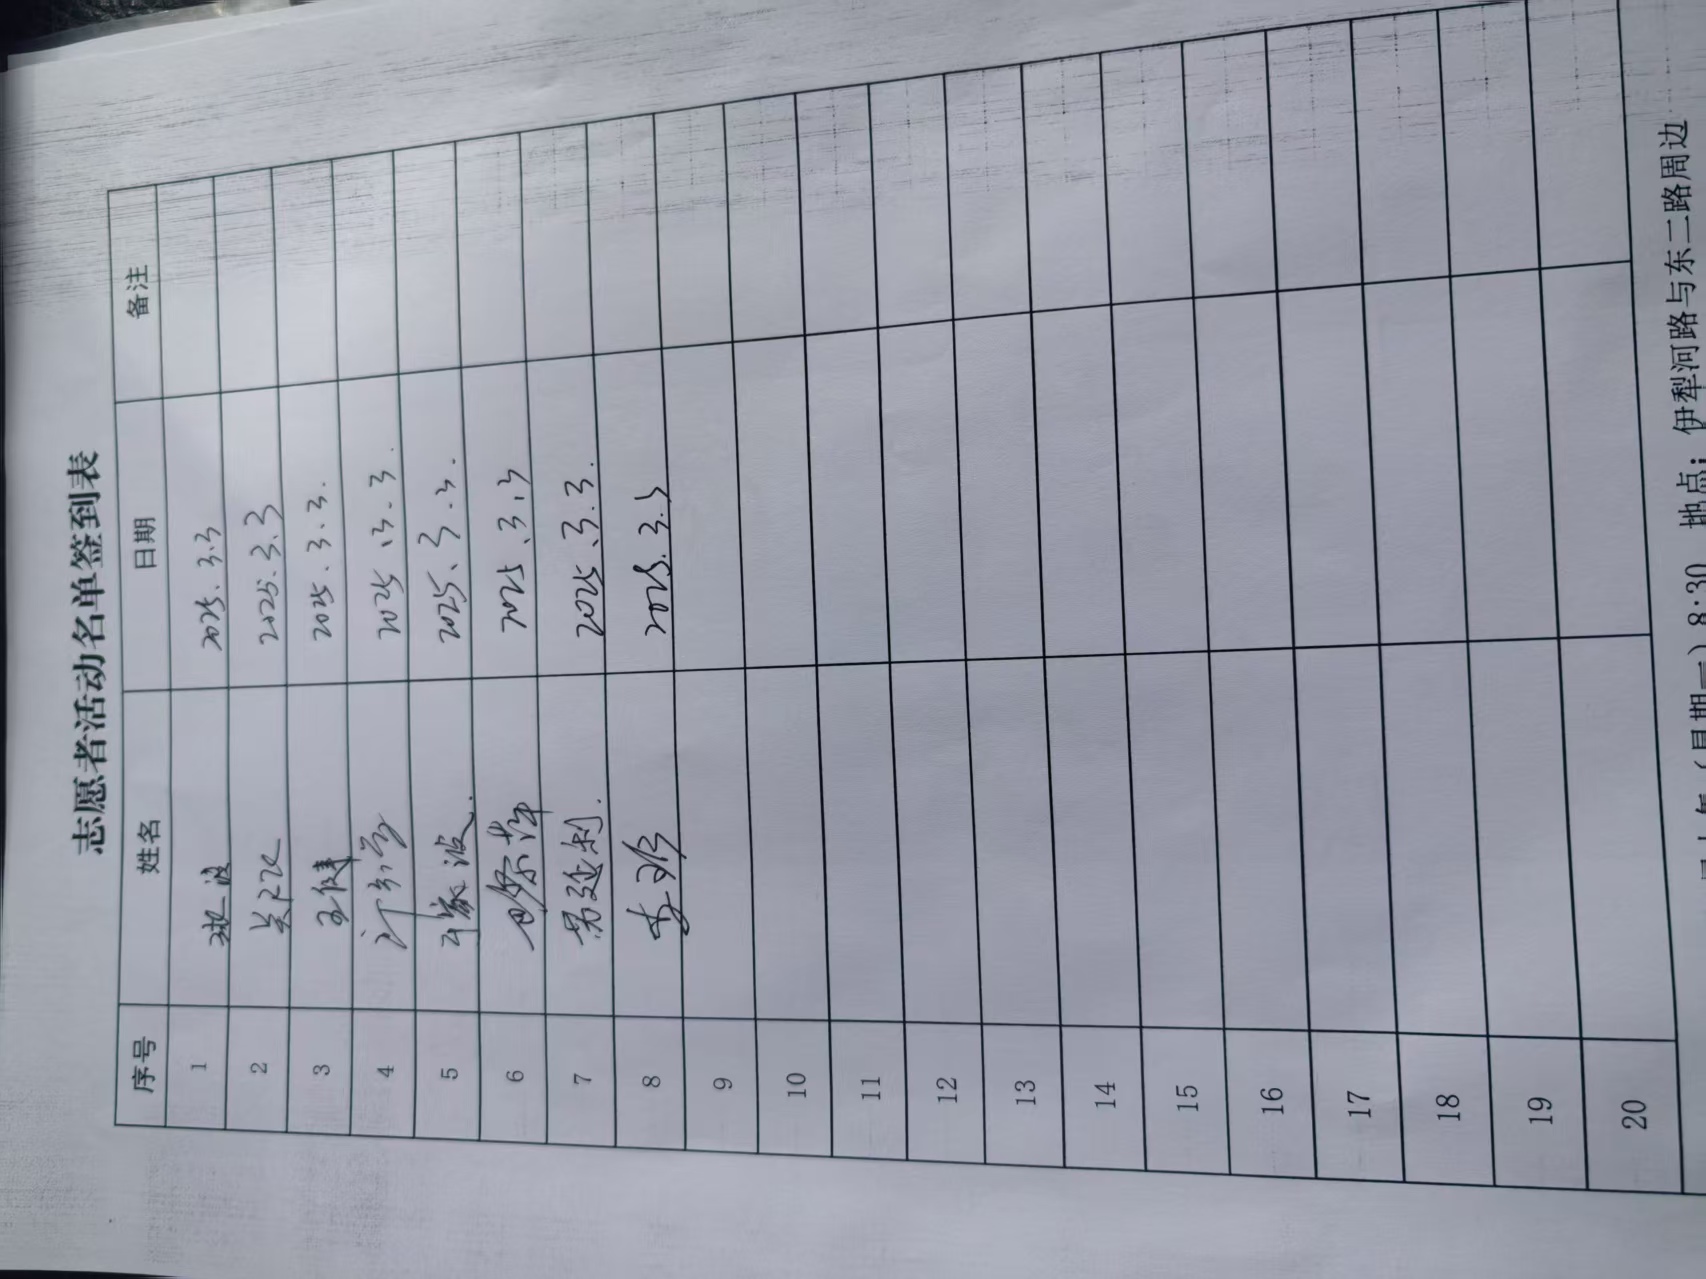 志愿者活动名单签到表
序号 姓名 日期 备注
1 2025.3.3
2 2025.3.3
3 王健 2025.3.3.
4 2025.3.3.
5 2025.3.3.
6 2025.3.3
7 2025.3.3.
8 李珍 2025.3.3
9
10
11
12
13
14
15
16
17
18
19
20
8:30 地点：伊犁河路与东二路周边